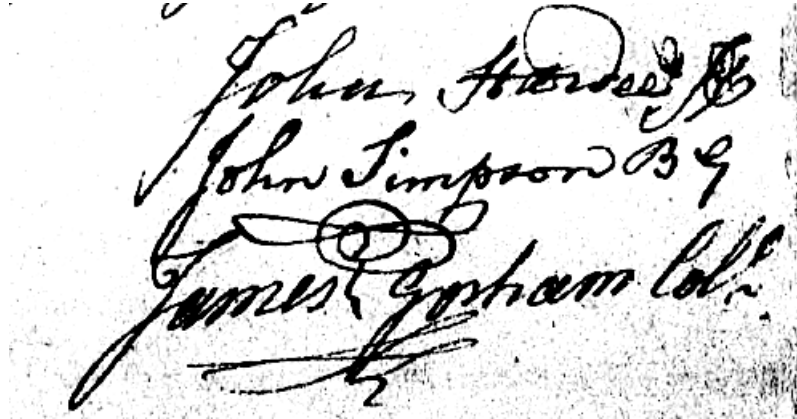 John Hardee
John Simpson B G
James Gorham Col.